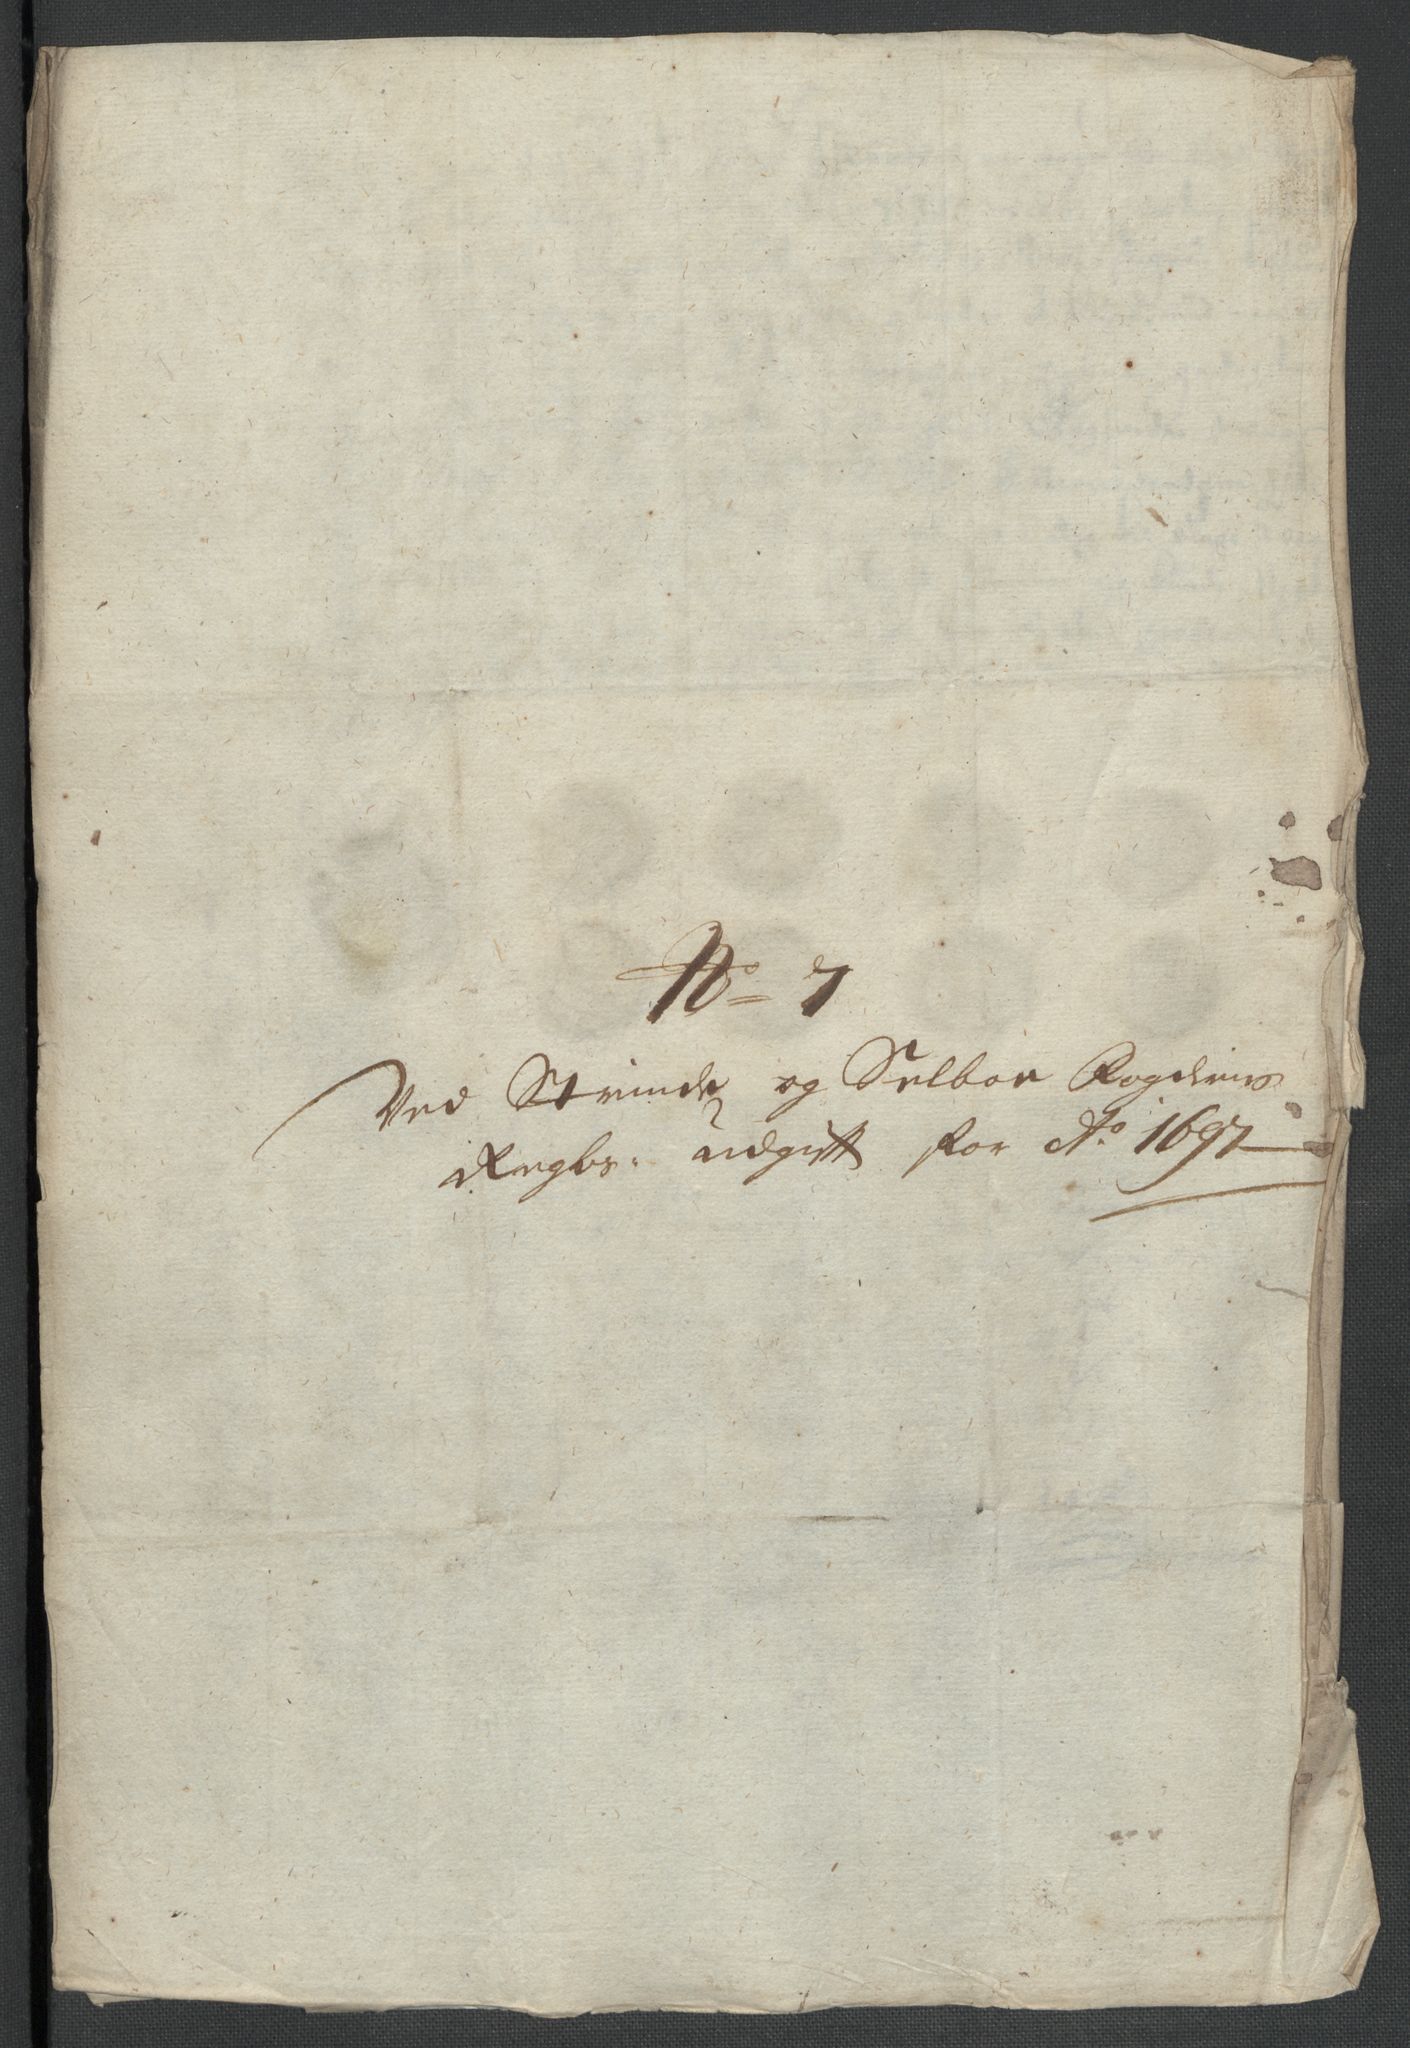 No 7
Ved Strinde og Selboe Fogderies
Regbs: udgift for Ao 1697